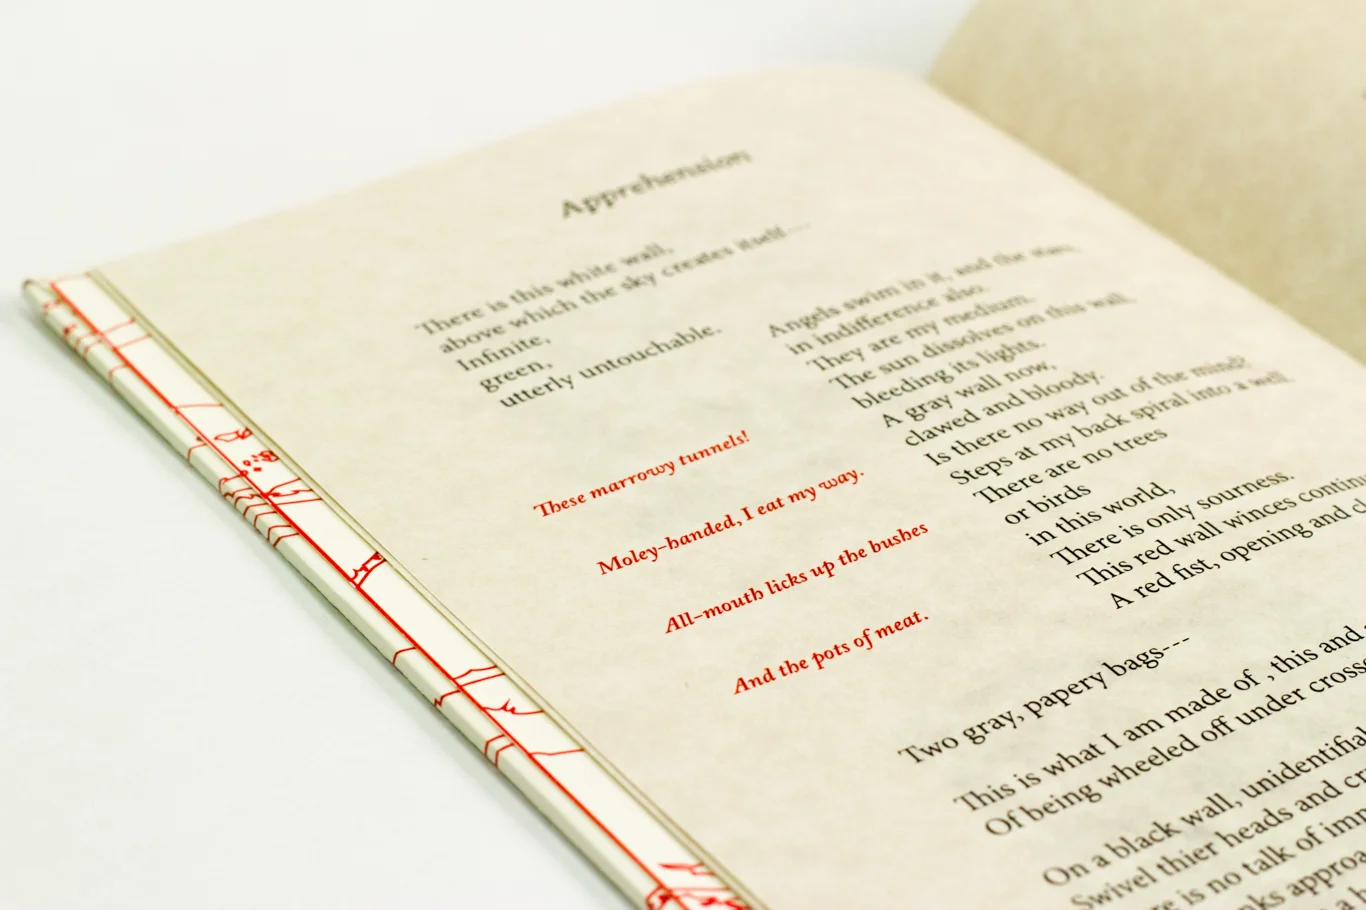 Apprehension
There is this white wall,
above which the sky creates itself---
Infinite,
green,
utterly untouchable.
Angels swim in it, and the stars,
in indifference also.
They are my medium.
The sun dissolves on this wall,
bleeding its lights.
A gray wall now,
clawed and bloody.
Is there no way out of the mind?
Steps at my back spiral into a well.
There are no trees
or birds
in this world,
There is only sourness.
This red wall winces
A red fist, opening and
These marrowy tunnels!
Moley-handed, I eat my way.
All-mouth licks up the bushes
And the pots of meat.
Two gray, papery bags---
This is what I am made of , this and
Of being wheeled off under
On a black wall,
Swivel thier heads and
is no talk of